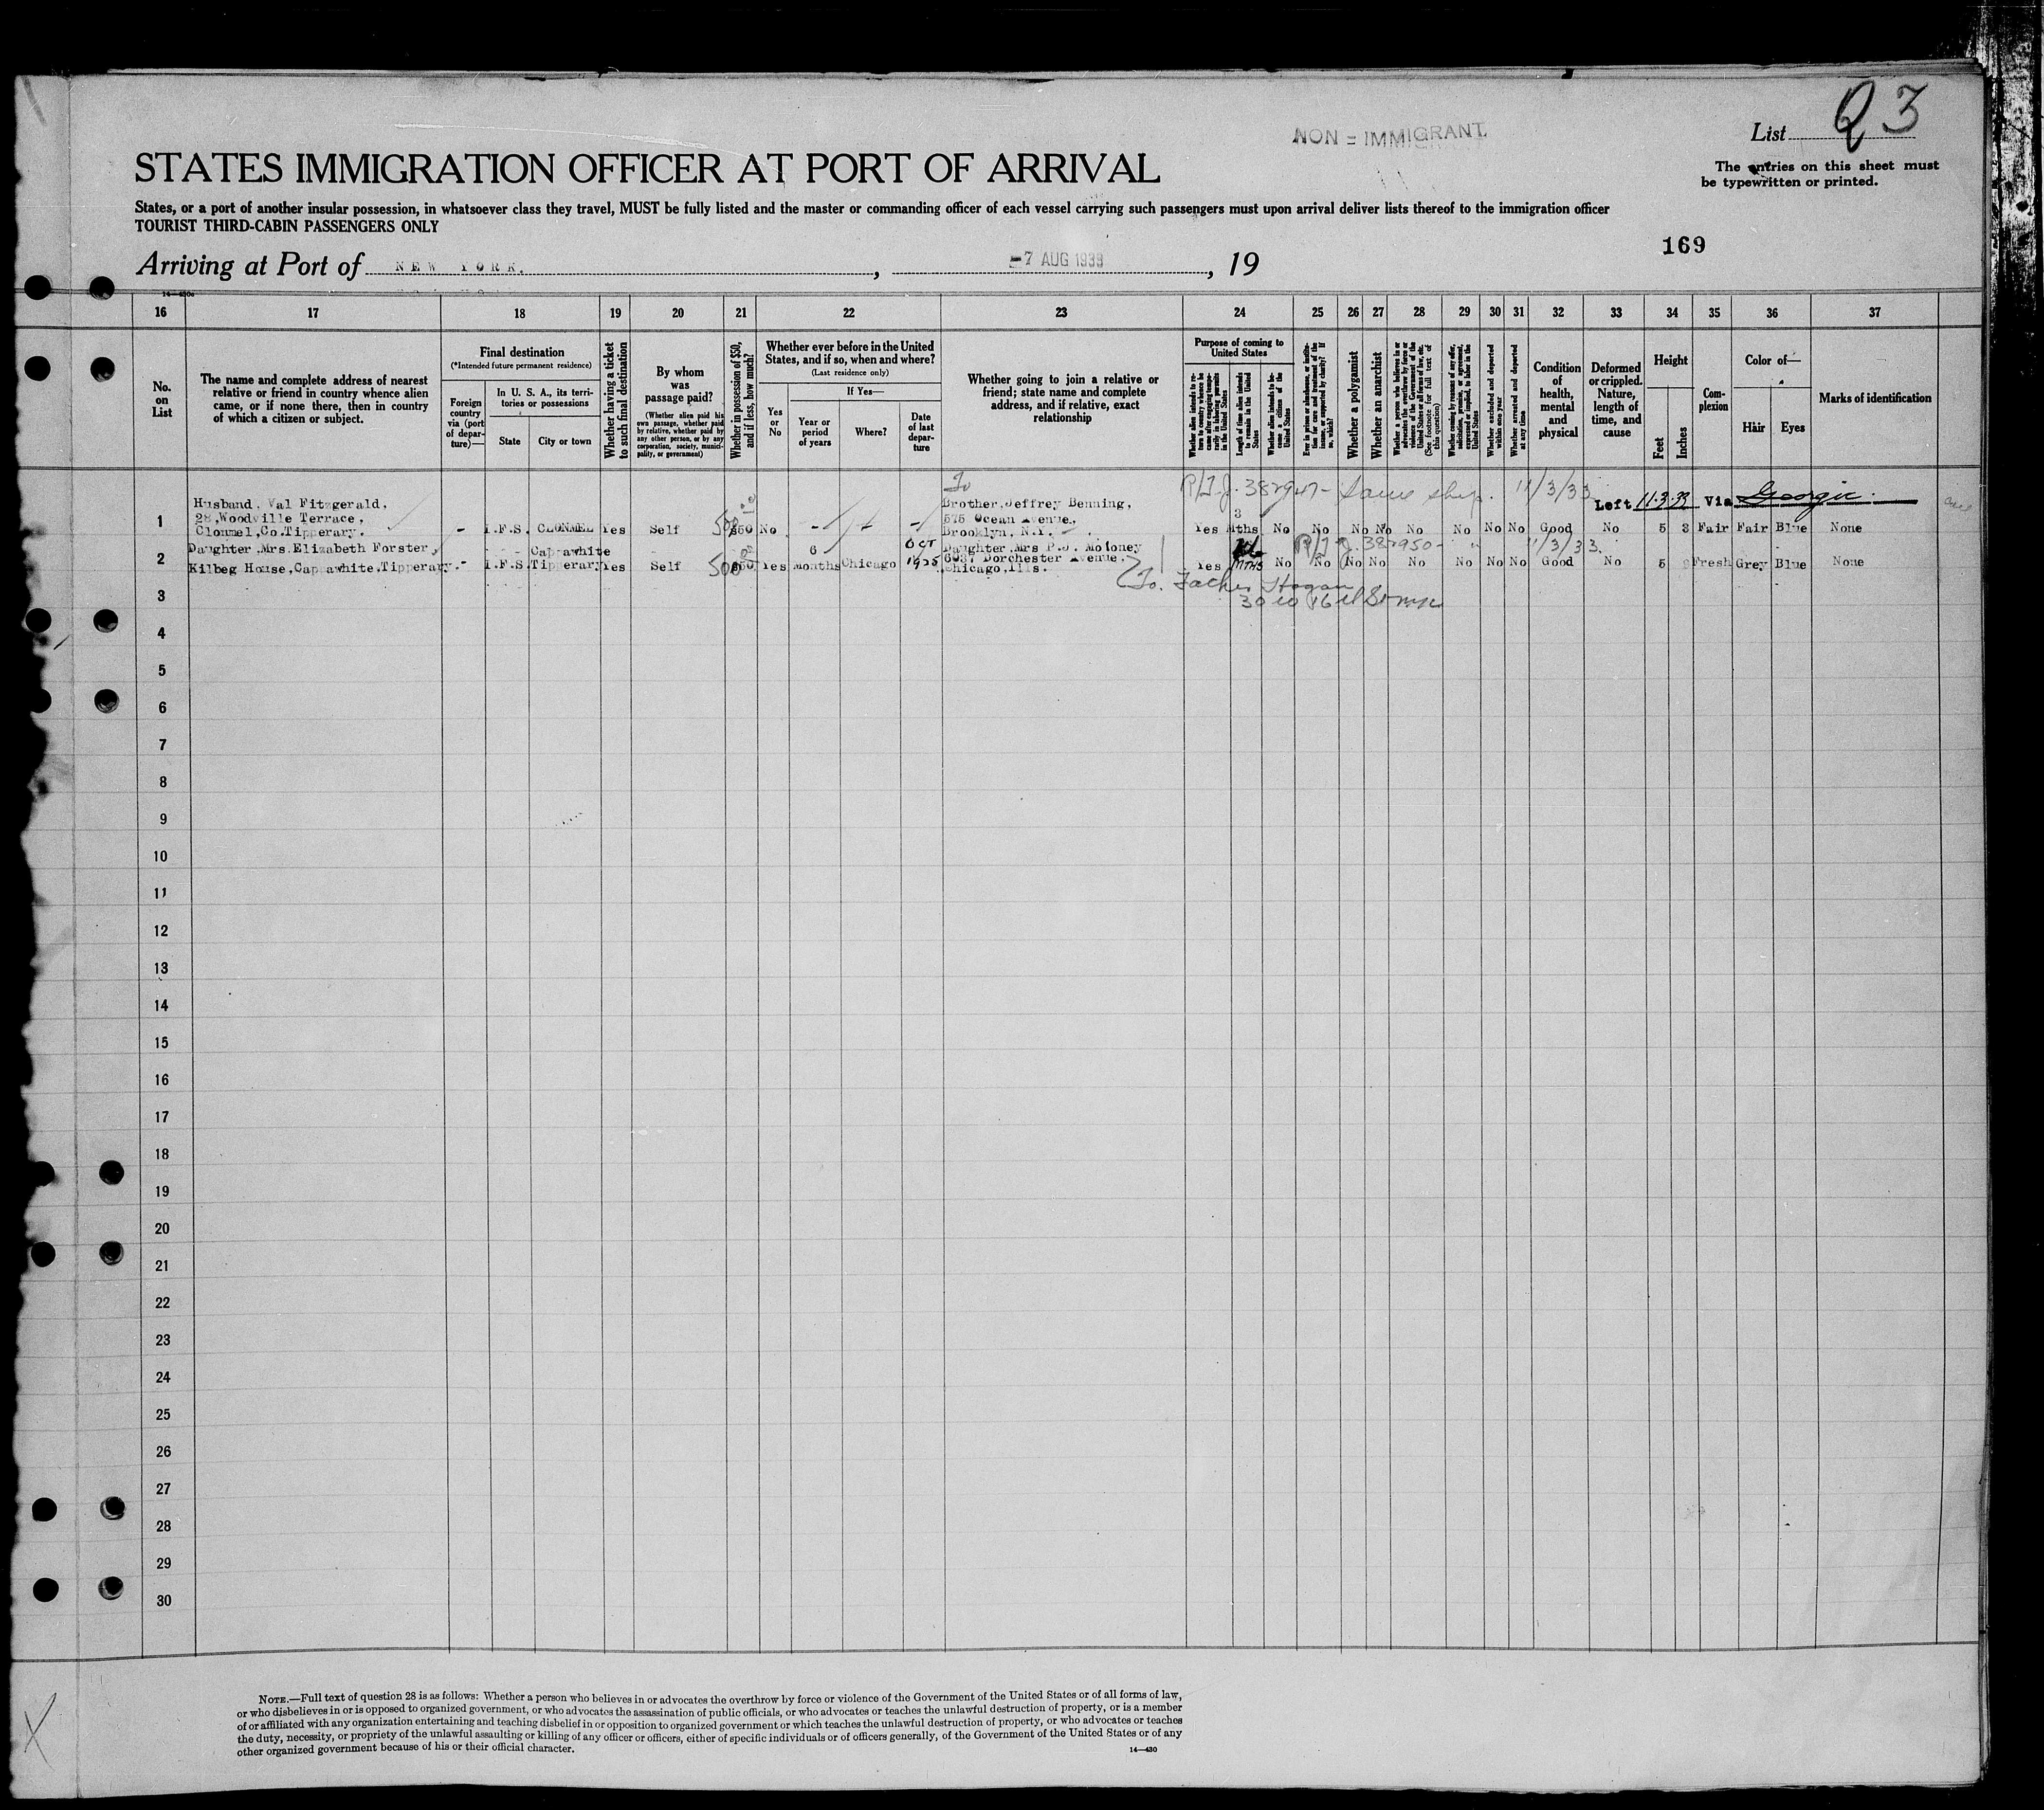 NON = IMMIGRANT.
List 23
STATES IMMIGRATION OFFICER AT PORT OF ARRIVAL
The entries on this sheet must
be typewritten or printed.
States, or a port of another insular possession, in whatsoever class they travel, MUST be fully listed and the master or commanding officer of each vessel carrying such passengers must upon arrival deliver lists thereof to the immigration officer
TOURIST THIRD-CABIN PASSENGERS ONLY
169
Arriving at Port of NEW YORK. , -7 AUG 1933 , 19
14—430a
16 17 18 19 20 21 22 23 24 25 26 27 28 29 30 31 32 33 34 35 36 37
No. on List
The name and complete address of nearest
relative or friend in country whence alien
came, or if none there, then in country
of which a citizen or subject.
Final destination
(*Intended future permanent residence)
Foreign country via (port of departure)—
In U. S. A., its territories or possessions
State
City or town
Whether having a ticket to such final destination
By whom was passage paid?
(Whether alien paid his own passage, whether paid by relative, whether paid by any other person, or by any corporation, society, municipality, or government)
Whether in possession of $50, and if less, how much?
Whether ever before in the United
States, and if so, when and where?
(Last residence only)
Yes or No
If Yes—
Year or period of years
Where?
Date of last departure
Whether going to join a relative or
friend; state name and complete
address, and if relative, exact
relationship
Purpose of coming to United States
Whether alien intends to return to country whence he came after engaging temporarily in laboring pursuits in the United States
Length of time alien intends to remain in the United States
Whether alien intends to become a citizen of the United States
Ever in prison or almshouse, or institution for care and treatment of the insane, or supported by charity? If so, which?
Whether a polygamist
Whether an anarchist
Whether a person who believes in or advocates the overthrow by force or violence of the Government of the United States or all forms of law, etc. (See footnote for full text of this question)
Whether coming by reason of any offer, solicitation, promise, or agreement, expressed or implied, to labor in the United States
Whether excluded and deported within one year
Whether arrested and deported at any time
Condition of health, mental and physical
Deformed or crippled. Nature, length of time, and cause
Height
Feet
Inches
Complexion
Color of—
Hair
Eyes
Marks of identification
To
P/T J. 382947 - Same ship. 11/3/33
Left 11.3.33 Via Georgic.
1
Husband, Val Fitzgerald,
28, Woodville Terrace,
Clonmel, Co. Tipperary.
- I.F.S. CLONMEL Yes Self $50 No - - -
Brother, Jeffrey Benning,
575 Ocean Avenue,
Brooklyn, N.Y.
Yes 3 Mths No No No No No No No No Good No 5 3 Fair Fair Blue None
P/T J. 382950 - " 11/3/33.
2
Daughter, Mrs. Elizabeth Forster,
Kilbeg House, Cappawhite, Tipperary.
- I.F.S. Cappawhite Tipperary Yes Self 500 $50 Yes 6 months Chicago Oct 1925
Daughter, Mrs P.J. Moloney
Dorchester Avenue,
Chicago, Ills.
Yes Mths No No No No No No No No Good No 5 Fresh Grey Blue None
To. Father Hogan
3
4
5
6
7
8
9
10
11
12
13
14
15
16
17
18
19
20
21
22
23
24
25
26
27
28
29
30
NOTE.—Full text of question 28 is as follows: Whether a person who believes in or advocates the overthrow by force or violence of the Government of the United States or of all forms of law,
or who disbelieves in or is opposed to organized government, or who advocates the assassination of public officials, or who advocates or teaches the unlawful destruction of property, or is a member
of or affiliated with any organization entertaining and teaching disbelief in or opposition to organized government or which teaches the unlawful destruction of property, or who advocates or teaches
the duty, necessity, or propriety of the unlawful assaulting or killing of any officer or officers, either of specific individuals or of officers generally, of the Government of the United States or of any
other organized government because of his or their official character.
14—430